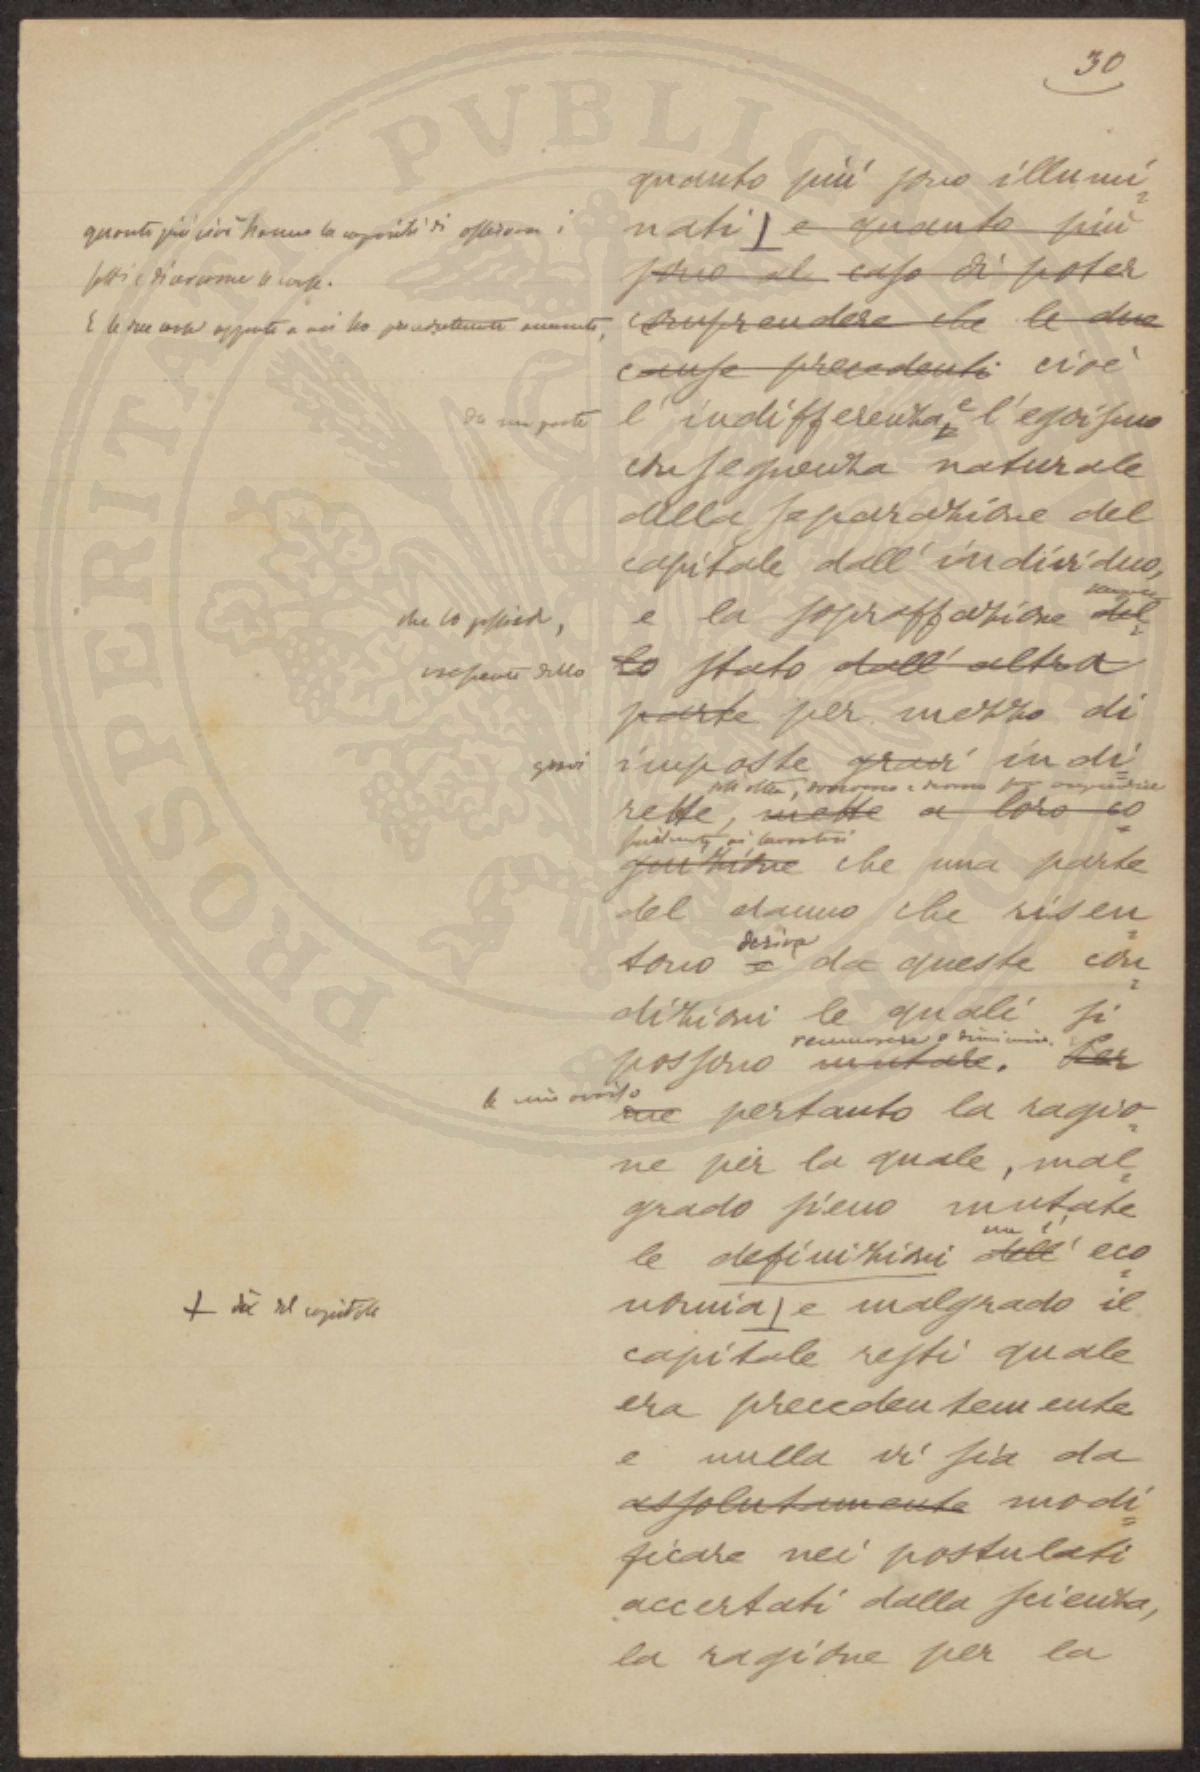 30
quanto più sono illumi=
nati] e quanto più
sono al caso di poter
comprendere che le due
cause precedenti cioè
l'indifferenza, e l'egoismo
conseguenza naturale
della separazione del
capitale dall'individuo,
e la sopraffazione del=
lo stato dall'altra
parte per mezzo di
imposte gravi indi=
rette, mette a loro co=
gnizione che una parte
del danno che risen=
tono è da queste con=
dizioni le quali si
possono mutare. Per
me pertanto la ragio=
ne per la quale, mal=
grado sieno mutate
le definizioni dell'eco=
nomia] e malgrado il
capitale resti quale
era precedentemente
e nulla vi sia da
assolutamente modi=
ficare nei postulati
accertati dalla scienza,
la ragione per la
quanto più cioè hanno la capacità di osservare i
fatti e di
E le due cause
da una parte
che lo possiede,
gravi
deriva
rimuovere o diminuire.
a mio avviso
+ dà del capitale
PROSPERITATI PVBLICAE